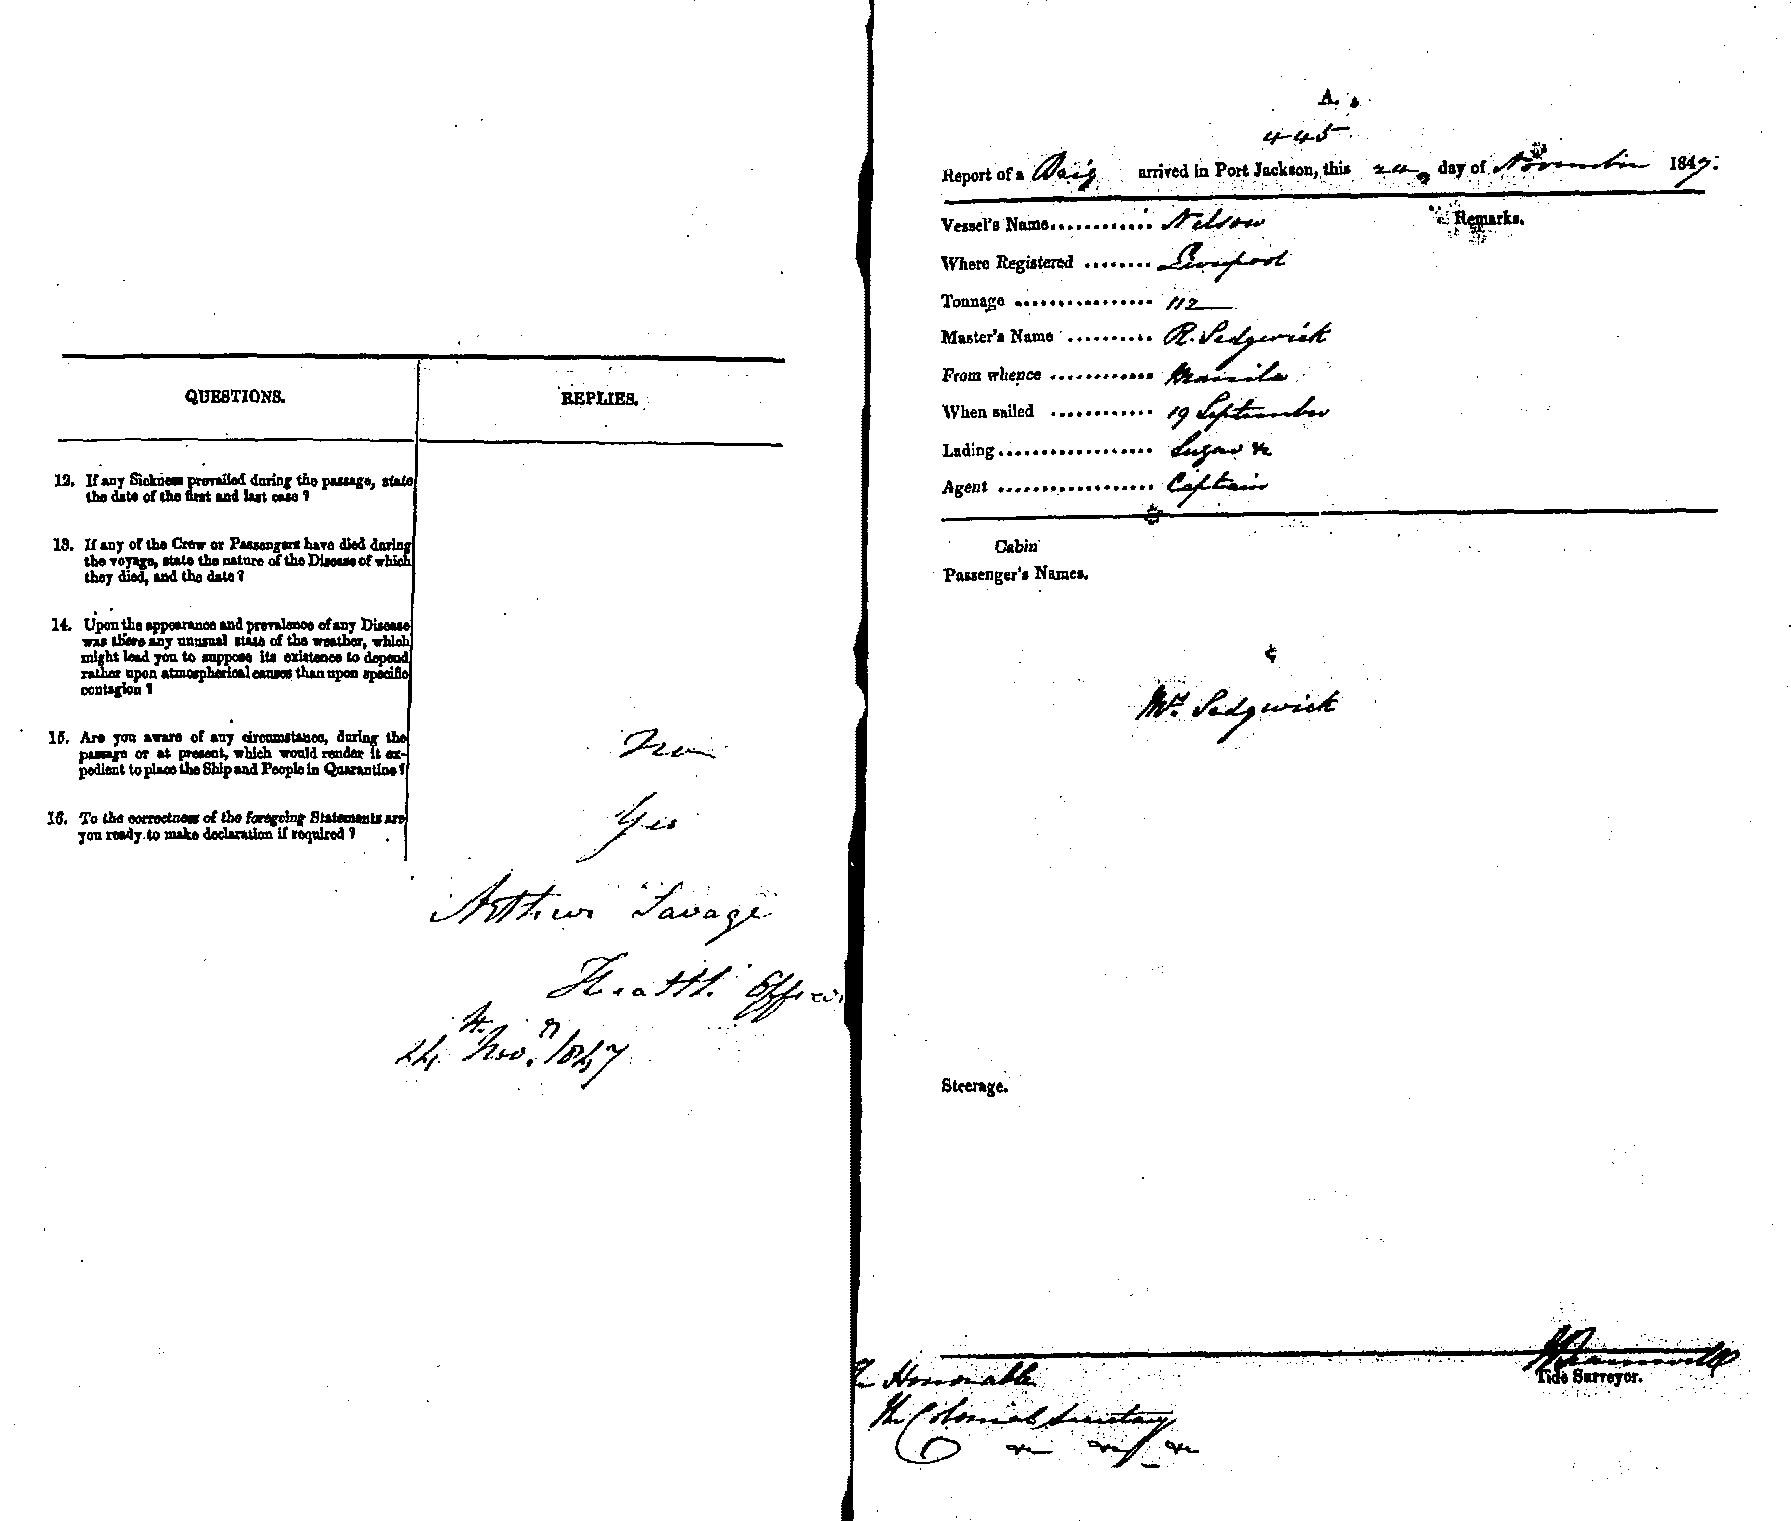 QUESTIONS. REPLIES.
12. If any Sickness prevailed during the passage, state
the date of the first and last case ?
13. If any of the Crew or Passengers have died during
the voyage, state the nature of the Disease of which
they died, and the date ?
14. Upon the appearance and prevalence of any Disease
was there any unusual state of the weather, which
might lead you to suppose its existence to depend
rather upon atmospherical causes than upon specific
contagion ?
15. Are you aware of any circumstance, during the
passage or at present, which would render it ex-
pedient to place the Ship and People in Quarantine ?
No
16. To the correctness of the foregoing Statements are
you ready to make declaration if required ?
Yes
Arthur Savage
Health Officer
24 Nov. 1847
A.
445
Report of a Brig arrived in Port Jackson, this 24 day of November 1847.
Vessel's Name............ Nelson Remarks.
Where Registered ........ Liverpool
Tonnage ................ 112
Master's Name .......... R. Sedgwick
From whence ............ Manila
When sailed ............ 19 September
Lading.................. Sugar &c
Agent .................. Captain
Cabin
Passenger's Names.
Mrs. Sedgwick
Steerage.
Tide Surveyor.
The Honorable
The Colonial Secretary
&c &c &c